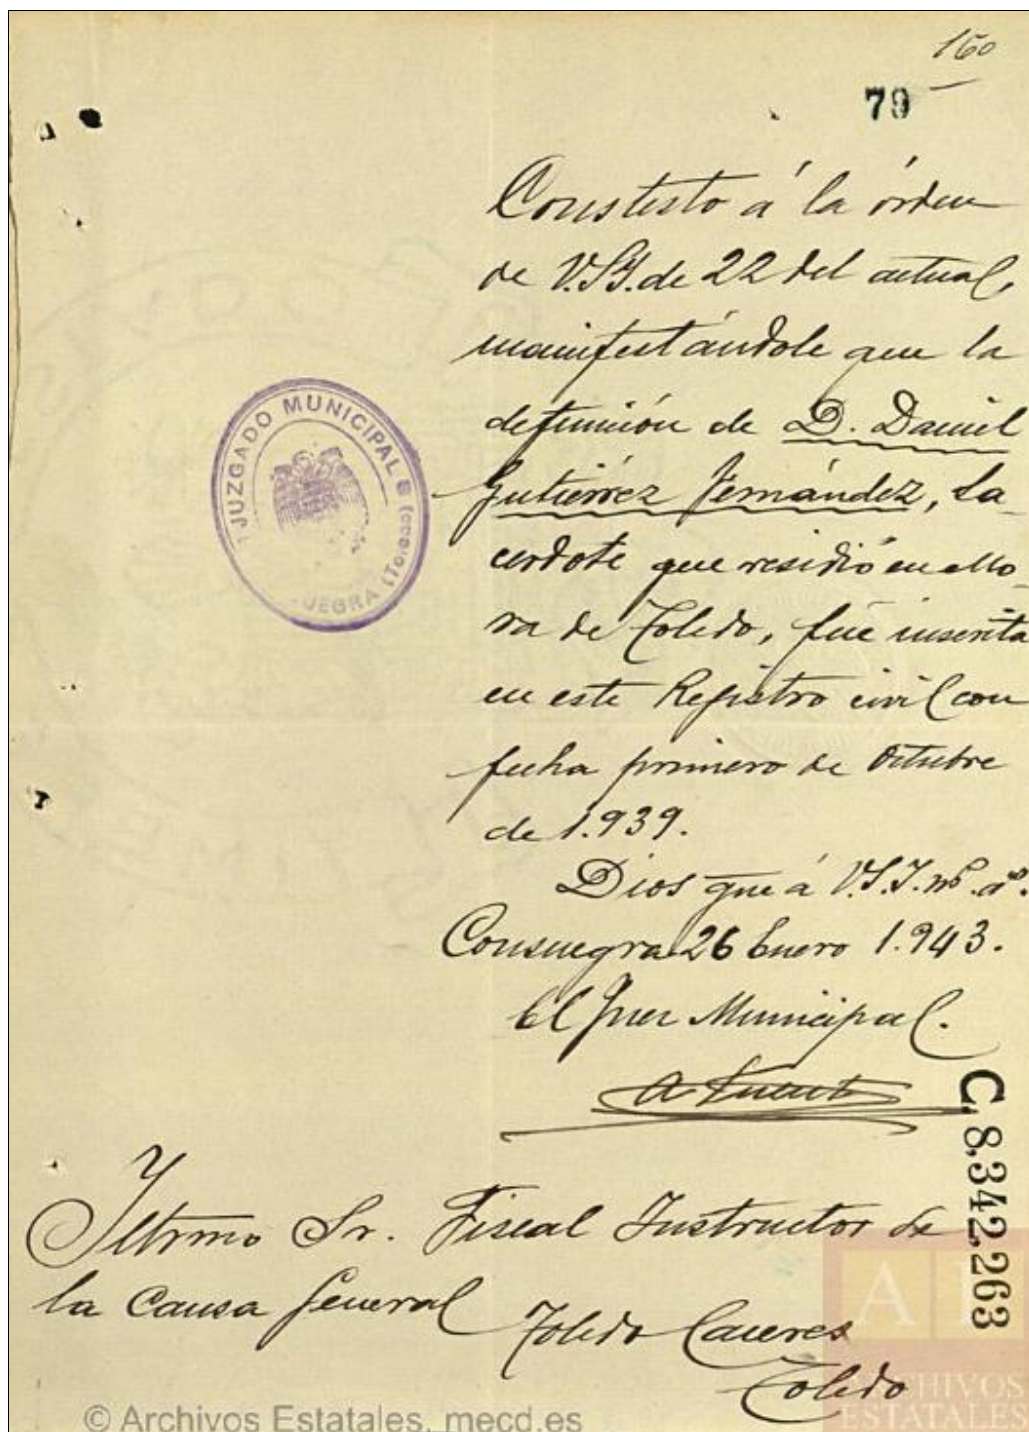 160
79
Constesto á la órden
de V.S.Y. de 22 del actual,
manifestándole que la
defunción de D. Daniel
Gutiérrez Fernández, Sa
cerdote que residió en Mo
ra de Toledo, fué inscrita
en este Registro civil con
fecha primero de Octubre
de 1.939.
Dios gue á V.S.I. ms. as.
Consuegra 26 Enero 1.943.
El Juez Municipal.
JUZGADO MUNICIPAL
UEGRA (Toledo)
C.8,342,263
Iltrmo Sr. Fiscal Instructor de
la Causa General
Toledo Caceres
Toledo
AE
ARCHIVOS
ESTATALES
© Archivos Estatales, mecd.es